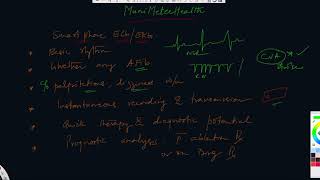 MuniMeterHealth
Smart phone ECG/EKGs
Basic rhythm
Whether any AFib
c/o palpitations, dizziness
Instantaneous recording & transmission
Quick therapy & diagnostic potential
Prognostic analysis: ablation Rx
or on Drug Rx
CVA